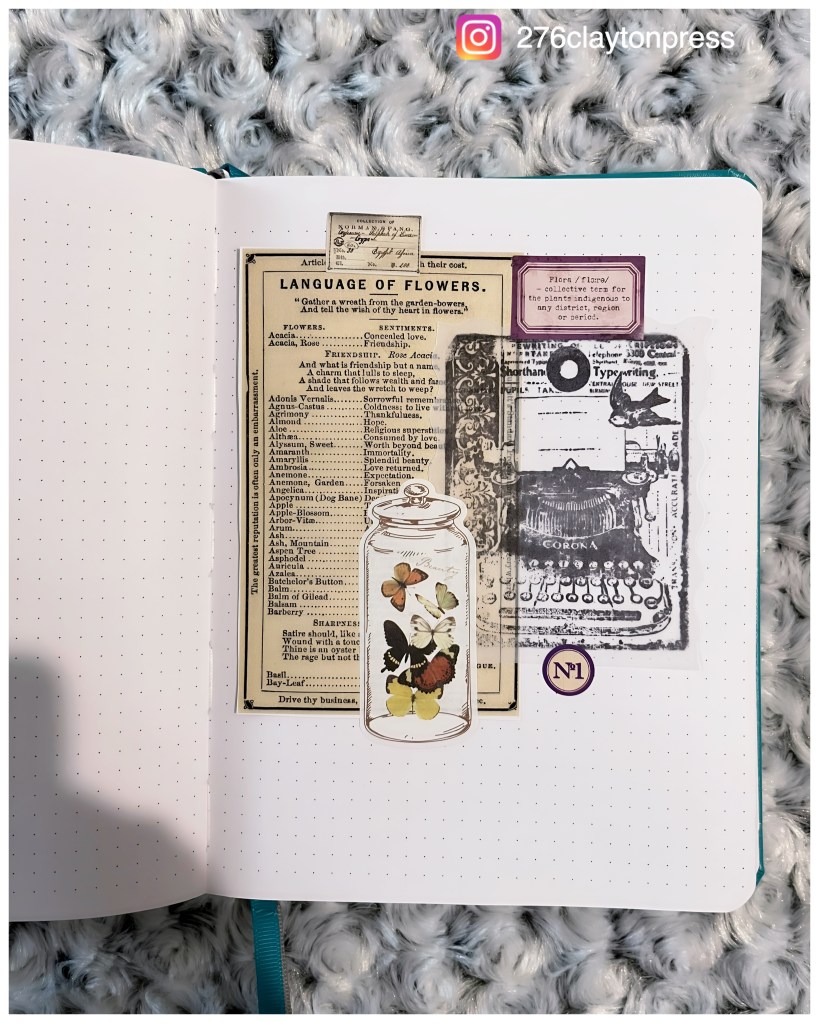 276claytonpress
COLLECTION OF
NORMAN
Egypt Africa
No.
Articl
h their cost,
LANGUAGE OF FLOWERS.
"Gather a wreath from the garden-bowers,
And tell the wish of thy heart in flowers."
FLOWERS. SENTIMENTS.
Acacia Concealed love.
Acacia, Rose Friendship.
FRIENDSHIP. Rose Acacia.
And what is friendship but a name,
A charm that lulls to sleep,
A shade that follows wealth and fam
And leaves the wretch to weep?
Adonis Vernalis. Sorrowful remem
Agnus-Castus Coldness; to live wi
Agrimony Thankfulness.
Almond Hope.
Aloe Religious superstiti
Althæa Consumed by love.
Alyssum, Sweet Worth beyond beau
Amaranth Immortality.
Amaryllis Splendid beauty.
Ambrosia Love returned.
Anemone Expectation.
Anemone, Garden Forsaken
Angelica Inspirati
Apocynum (Dog Bane) De
Apple T
Apple-Blossom P
Arbor-Vitæ U
Arum
Ash
Ash, Mountain
Aspen Tree
Asphodel
Auricula
Azalea
Batchelor's Button
Balm
Balm of Gilead
Balsam
Barberry
SHARPNES
Satire should, like a
Wound with a touc
Thine is an oyster
The rage but not th
GUE.
Basil
Bay-Leaf
Drive thy business,
The greatest reputation is often only an embarrassment.
Flora /flɔːrə/
- collective term for
the plants indigenous to
any district, region
or period.
Telephone 3300 Central
Shorthand Typewriting.
PUPILS TAK
NEW STREET
BIRMINGH
ACCURATE
MADE
TRANS
CORONA
Beauty
Nº1